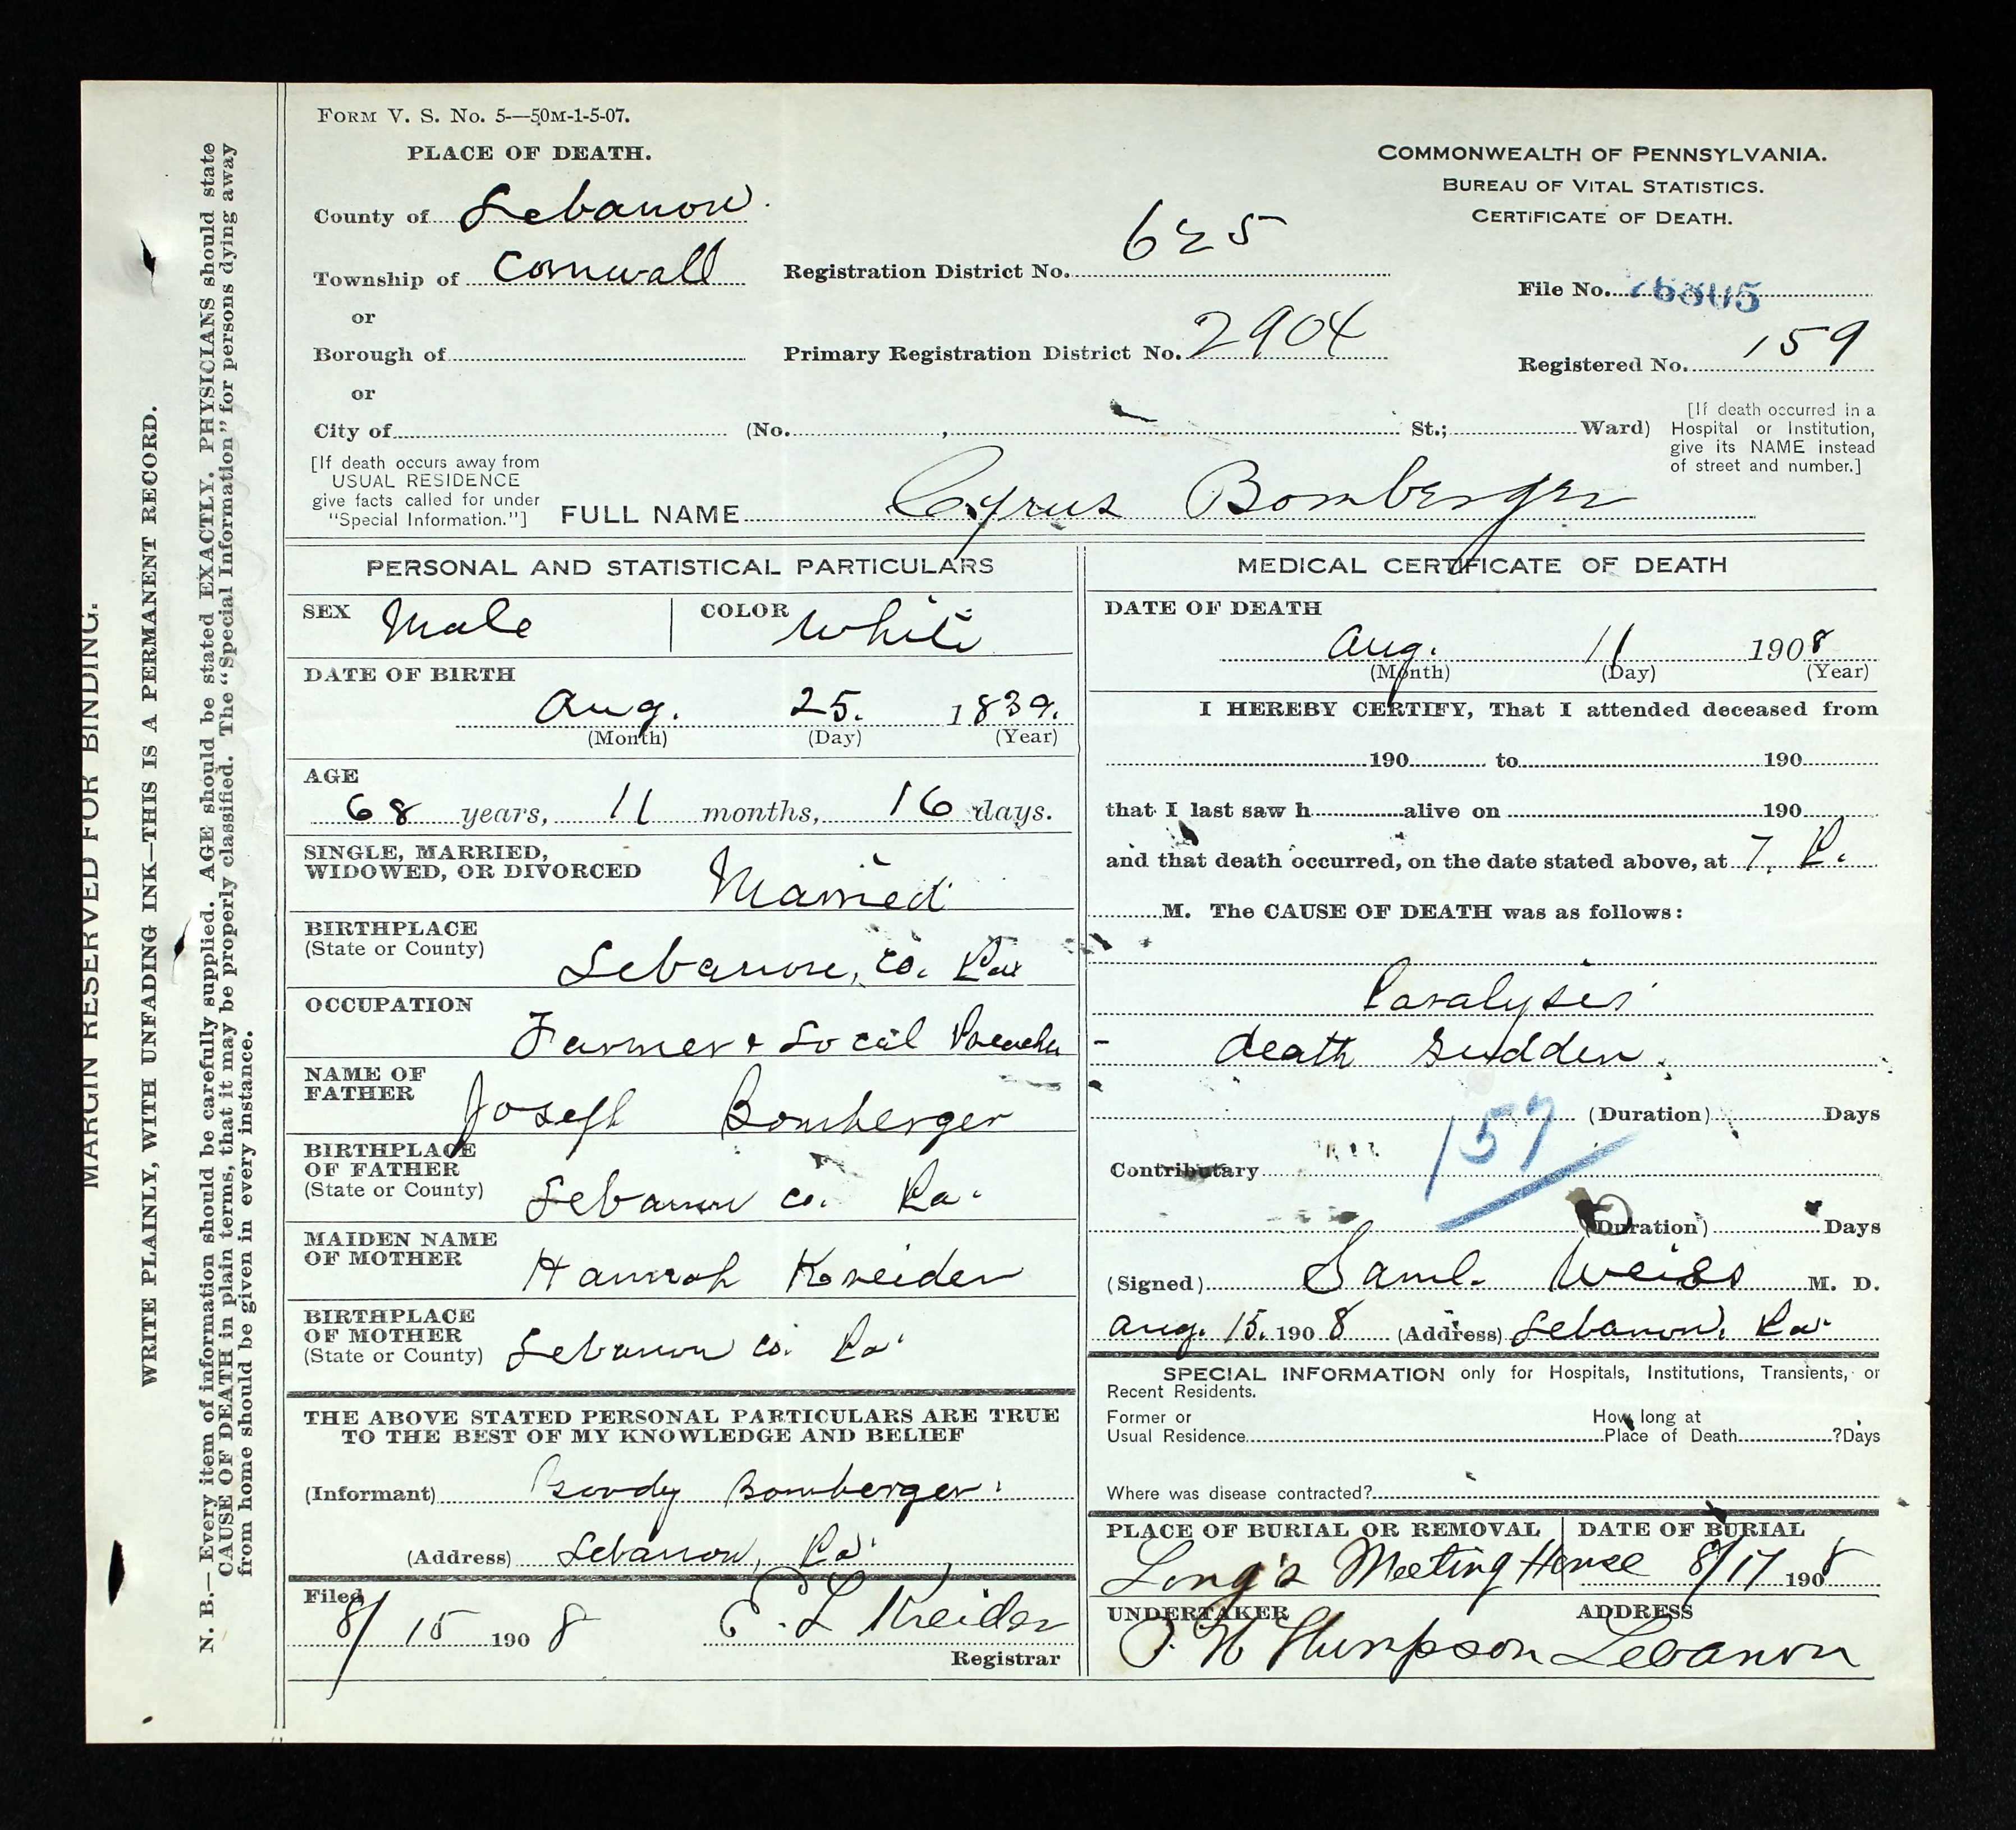 FORM V. S. No. 5—50M-1-5-07.
PLACE OF DEATH.
County of Lebanon.
Township of Cornwall
or
Borough of
or
City of
(No. , St.; Ward)
[If death occurs away from
USUAL RESIDENCE
give facts called for under
"Special Information."]
Registration District No. 625
Primary Registration District No. 2904
COMMONWEALTH OF PENNSYLVANIA.
BUREAU OF VITAL STATISTICS.
CERTIFICATE OF DEATH.
File No.
Registered No. 159
[If death occurred in a
Hospital or Institution,
give its NAME instead
of street and number.]
FULL NAME Cyrus Bomberger
PERSONAL AND STATISTICAL PARTICULARS
SEX Male
COLOR White
DATE OF BIRTH
Aug. 25. 1839.
(Month) (Day) (Year)
AGE
68 years, 11 months, 16 days.
SINGLE, MARRIED,
WIDOWED, OR DIVORCED Married
BIRTHPLACE
(State or County) Lebanon, Co. Pa
OCCUPATION
Farmer & Local Preacher
NAME OF
FATHER Joseph Bomberger
BIRTHPLACE
OF FATHER
(State or County) Lebanon Co. Pa.
MAIDEN NAME
OF MOTHER Hannah Kreider
BIRTHPLACE
OF MOTHER
(State or County) Lebanon Co. Pa.
THE ABOVE STATED PERSONAL PARTICULARS ARE TRUE
TO THE BEST OF MY KNOWLEDGE AND BELIEF
(Informant) Bomberger.
(Address) Lebanon, Pa.
Filed
8/15 1908 E. L Kreider
Registrar
MEDICAL CERTIFICATE OF DEATH
DATE OF DEATH
Aug. 11 1908
(Month) (Day) (Year)
I HEREBY CERTIFY, That I attended deceased from
190 to 190
that I last saw h alive on 190
and that death occurred, on the date stated above, at 7 P.
M. The CAUSE OF DEATH was as follows:
Paralysis
death sudden.
(Duration) Days
157
Contributary
(Duration) Days
(Signed) Saml. Weiss M. D.
Aug. 15. 1908 (Address) Lebanon, Pa.
SPECIAL INFORMATION only for Hospitals, Institutions, Transients, or
Recent Residents.
Former or
Usual Residence
How long at
Place of Death ?Days
Where was disease contracted?
PLACE OF BURIAL OR REMOVAL
Long's Meeting House
DATE OF BURIAL
8/17 1908
UNDERTAKER
Thompson
ADDRESS
Lebanon
MARGIN RESERVED FOR BINDING.
WRITE PLAINLY, WITH UNFADING INK—THIS IS A PERMANENT RECORD.
N. B.—Every item of information should be carefully supplied. AGE should be stated EXACTLY. PHYSICIANS should state
CAUSE OF DEATH in plain terms, that it may be properly classified. The "Special Information" for persons dying away
from home should be given in every instance.